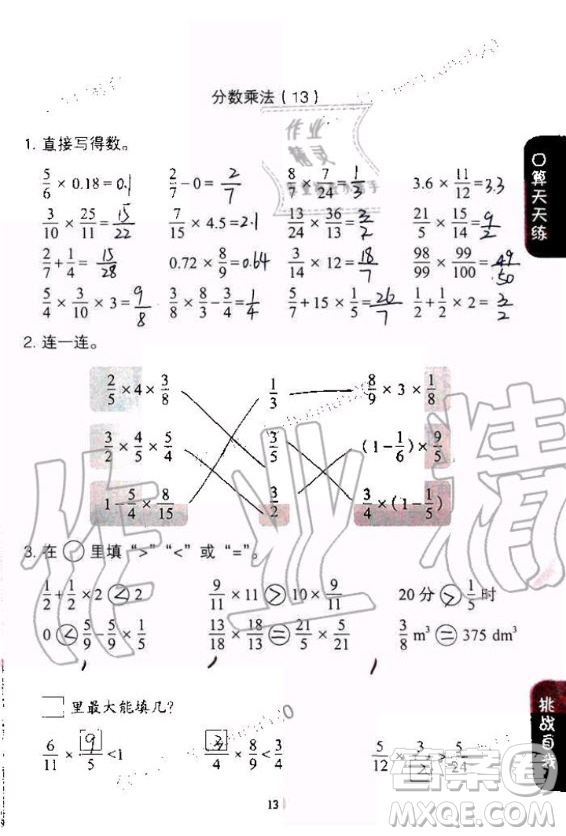 分数乘法（13）
1. 直接写得数。
5/6 × 0.18 = 0.1  2/7 − 0 = 2/7  8/7 × 7/24 = 1/3  3.6 × 11/12 = 3.3
3/10 × 25/11 = 15/22  7/15 × 4.5 = 2.1  13/24 × 36/13 = 3/2  21/5 × 15/14 = 9/2
2/7 + 1/4 = 15/28  0.72 × 8/9 = 0.64  3/14 × 12 = 18/7  98/99 × 99/100 = 49/50
5/4 × 3/10 × 3 = 9/8  3/8 × 8/3 − 3/4 = 1/4  5/7 + 15 × 1/5 = 26/7  1/2 + 1/2 × 2 = 3/2
2. 连一连。
2/5 × 4 × 3/8  1/3  8/9 × 3 × 1/8
3/2 × 4/5 × 5/4  3/5  (1 − 1/6) × 9/5
1 − 5/4 × 8/15  3/2  3/4 × (1 − 1/5)
3. 在○里填“>”“<”或“=”。
1/2 + 1/2 × 2 < 2  9/11 × 11 > 10 × 9/11  20分 > 1/5 时
0 < 5/9 − 5/9 × 1/5  13/18 × 18/13 = 21/5 × 5/21  3/8 m³ = 375 dm³
□里最大能填几?
6/11 × 9/5 < 1  3/4 × 8/9 < 3/4  5/12 × 3/2 > 5/24
13
算天天练
挑战自我
作业精灵
答案圈
MXQE.COM